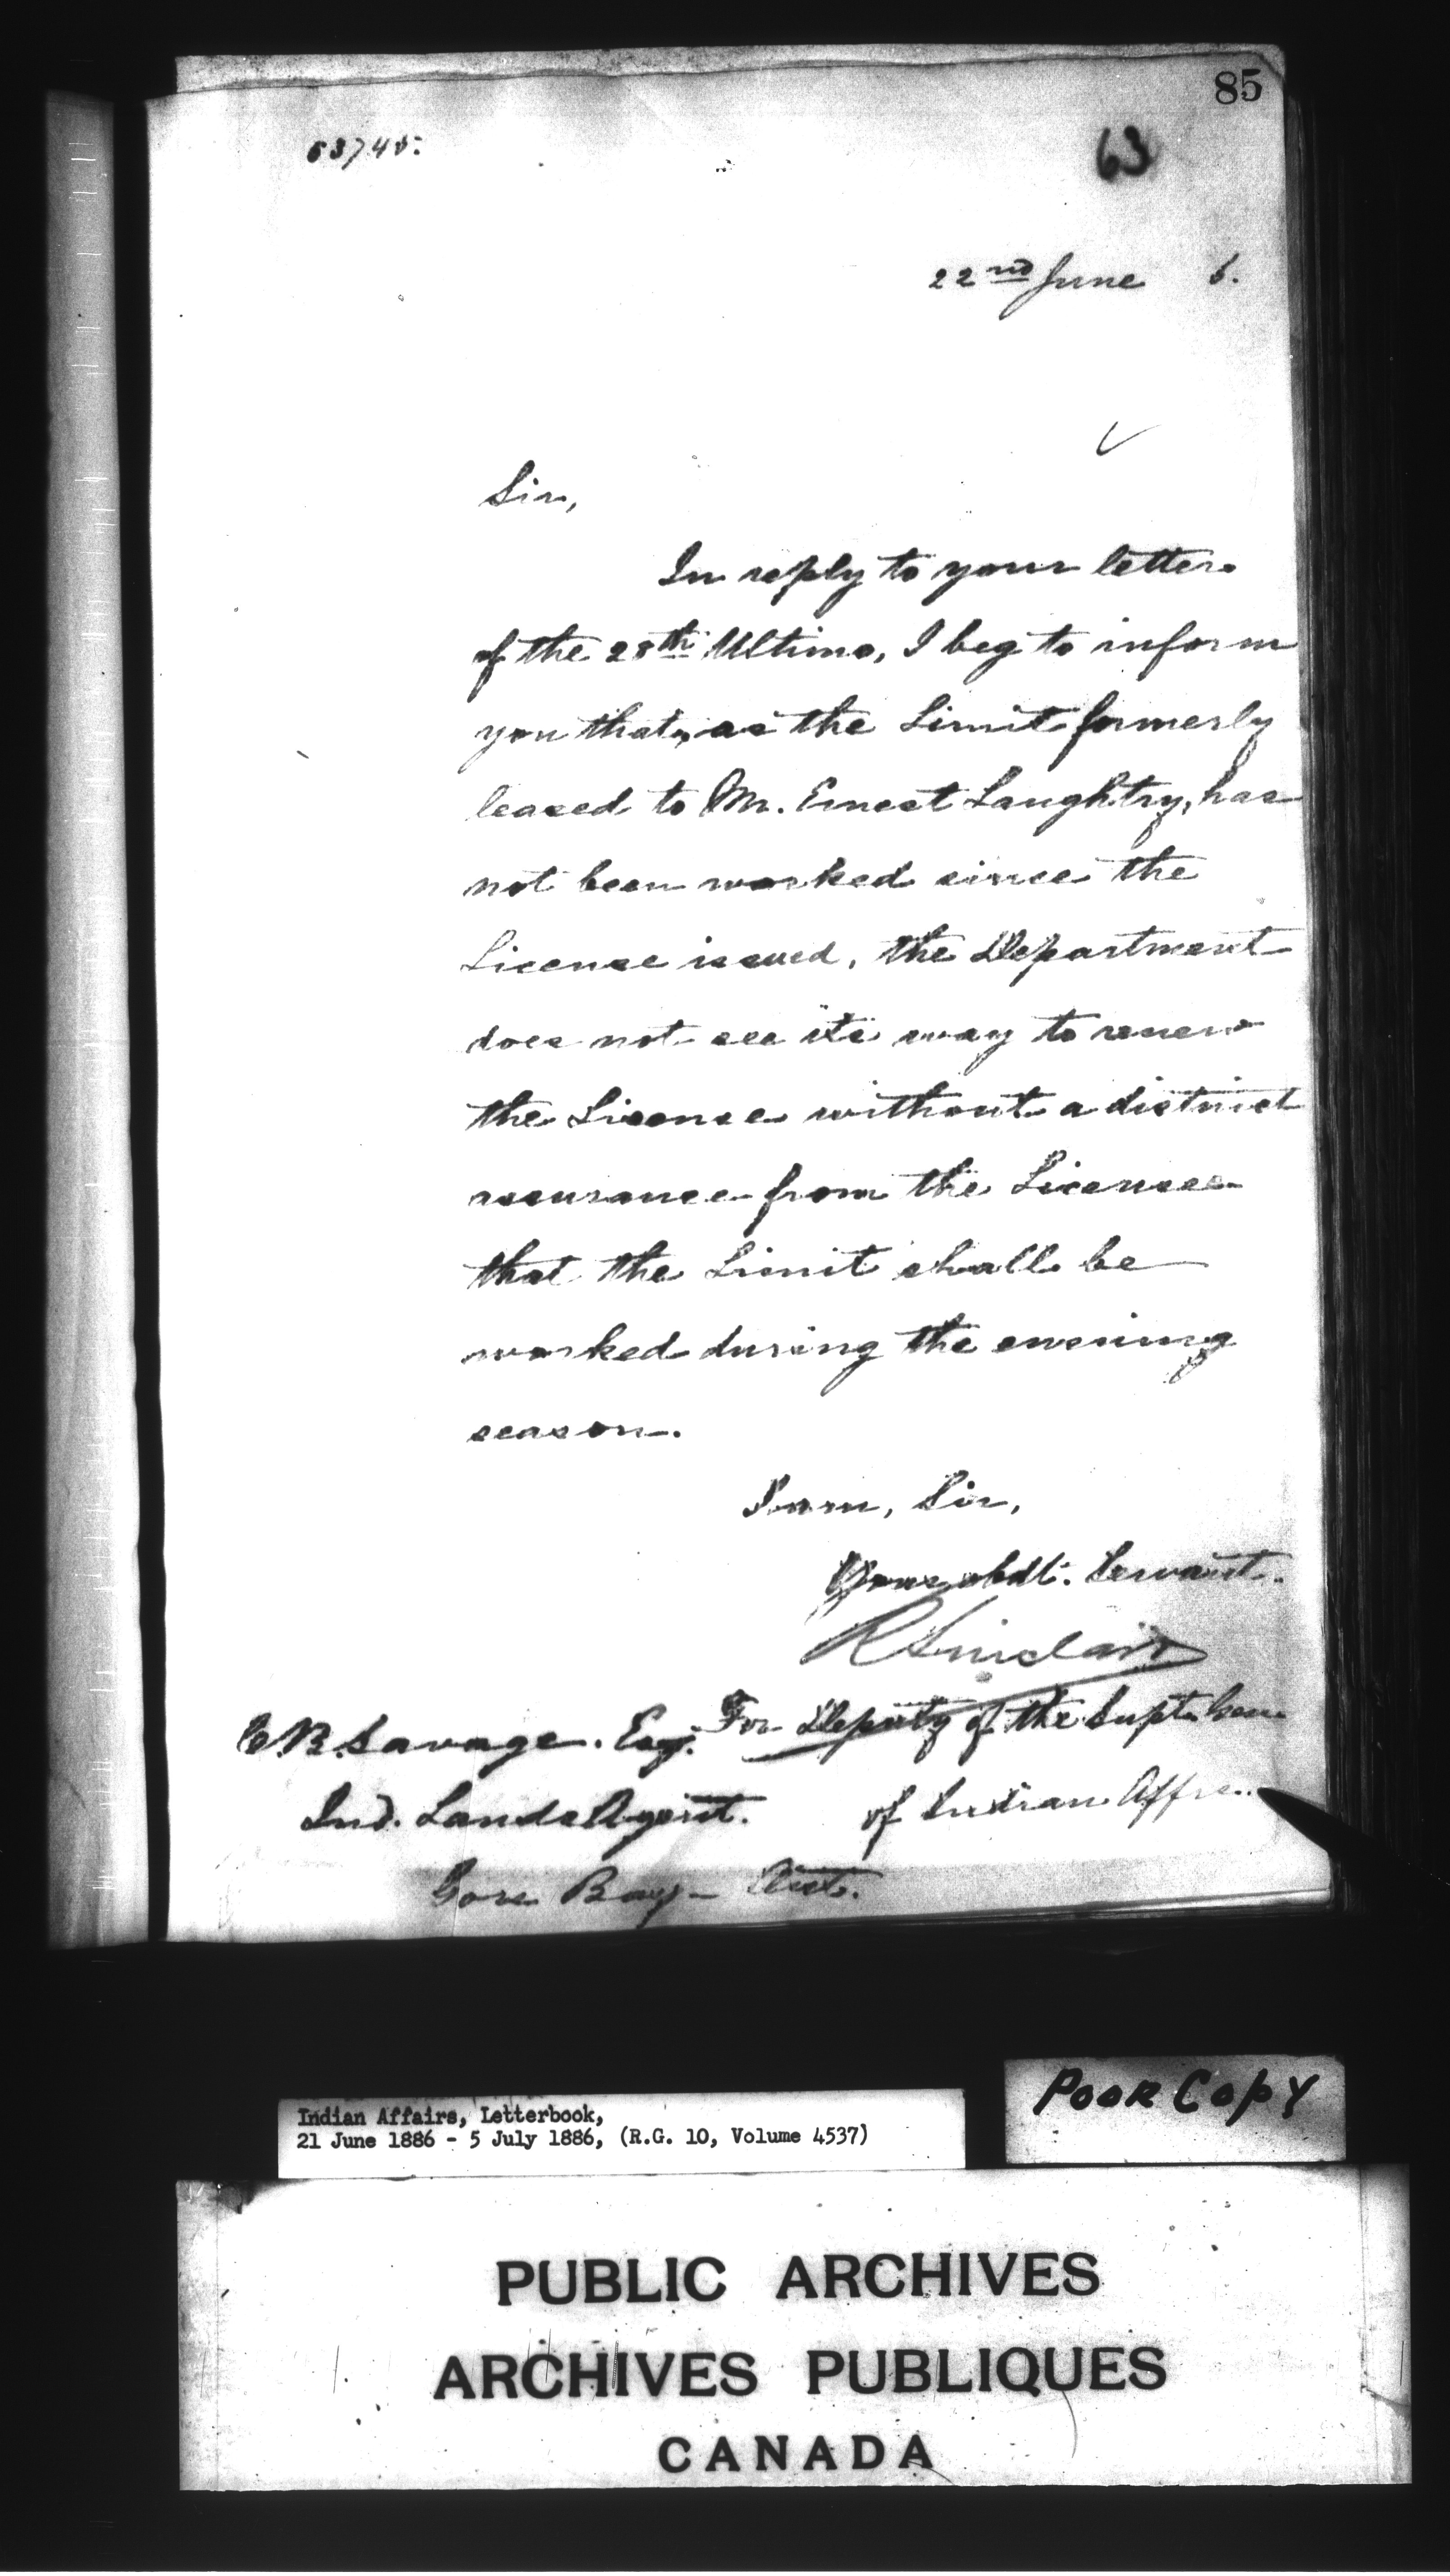 85
63
53745.
22nd June 6.
Sir,
In reply to your letter
of the 28th Ultimo, I beg to inform
you that, as the Limit formerly
leased to Mr. Ernest Laughtry, has
not been worked since the
License issued, the Department
does not see its way to renew
the License without a distinct
assurance from the Licensee
that the Limit shall be
worked during the ensuing
season.
I am, Sir,
Your obdt. Servant.
R Sinclair
For Deputy of the Supt. Gen
of Indian Affrs.
B. Savage. Esq.
Ind. Lands Agent.
Gore Bay - Ont.
POOR COPY
Indian Affairs, Letterbook,
21 June 1886 - 5 July 1886, (R.G. 10, Volume 4537)
PUBLIC ARCHIVES
ARCHIVES PUBLIQUES
CANADA